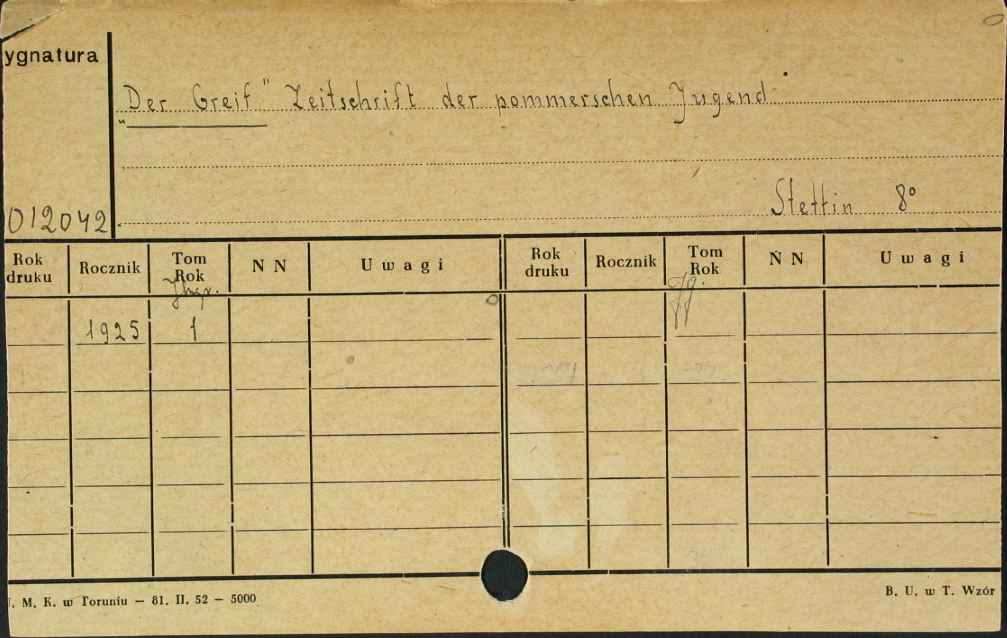 ygnatura
„Der Greif" Zeitschrift der pommerschen Jugend
Stettin 8°
012042
Rok druku Rocznik Tom Rok N N Uwagi Rok druku Rocznik Tom Rok N N Uwagi
Jg.
1925 1
. M. K. w Toruniu — 81. II. 52 — 5000
B. U. w T. Wzór